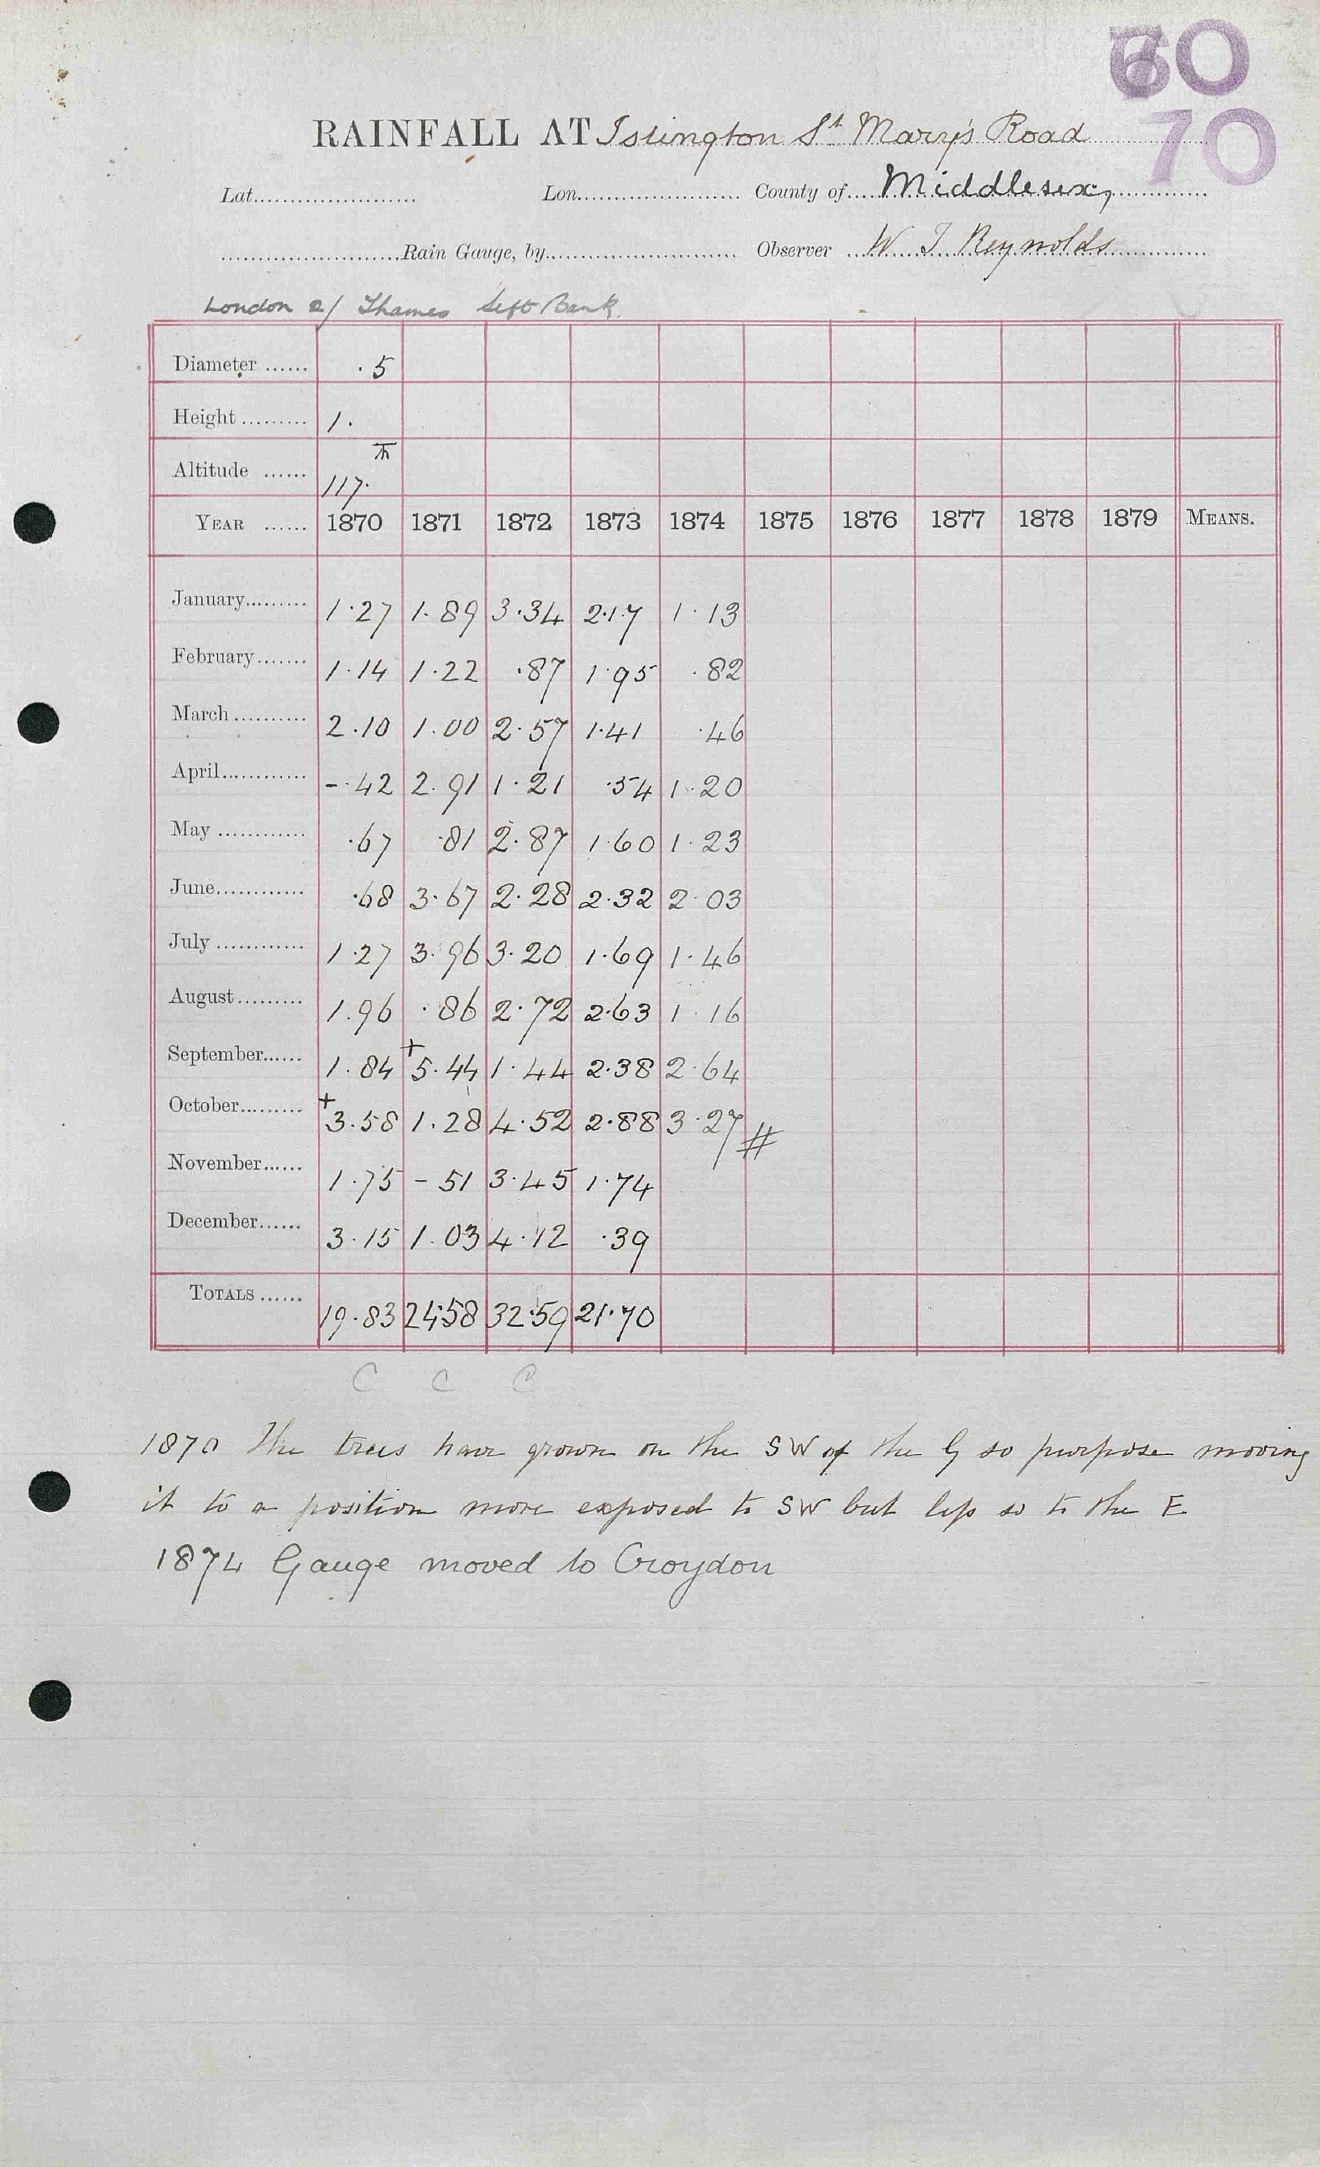 60
70
RAINFALL AT Islington St Mary's Road
Lat. Lon. County of Middlesex,
Rain Gauge, by Observer W. T. Reynolds
London 2/ Thames Left Bank.
Diameter ...... .5
Height ......... 1.
Altitude ...... 117.
YEAR ...... 1870 1871 1872 1873 1874 1875 1876 1877 1878 1879 MEANS.
January......... 1.27 1.89 3.34 2.17 1.13
February....... 1.14 1.22 .87 1.95 .82
March .......... 2.10 1.00 2.57 1.41 .46
April............ -.42 2.91 1.21 .54 1.20
May ............ .67 .81 2.87 1.60 1.23
June............ .68 3.67 2.28 2.32 2.03
July ............ 1.27 3.96 3.20 1.69 1.46
August......... 1.96 .86 2.72 2.63 1.16
September...... 1.84 +5.44 1.44 2.38 2.64
October......... +3.58 1.28 4.52 2.88 3.27 #
November...... 1.75 - 51 3.45 1.74
December...... 3.15 1.03 4.12 .39
TOTALS ...... 19.83 24.58 32.59 21.70
C C C
1870 The trees have grown on the SW of the G so purpose moving
it to a position more exposed to SW but less so to the E
1874 Gauge moved to Croydon